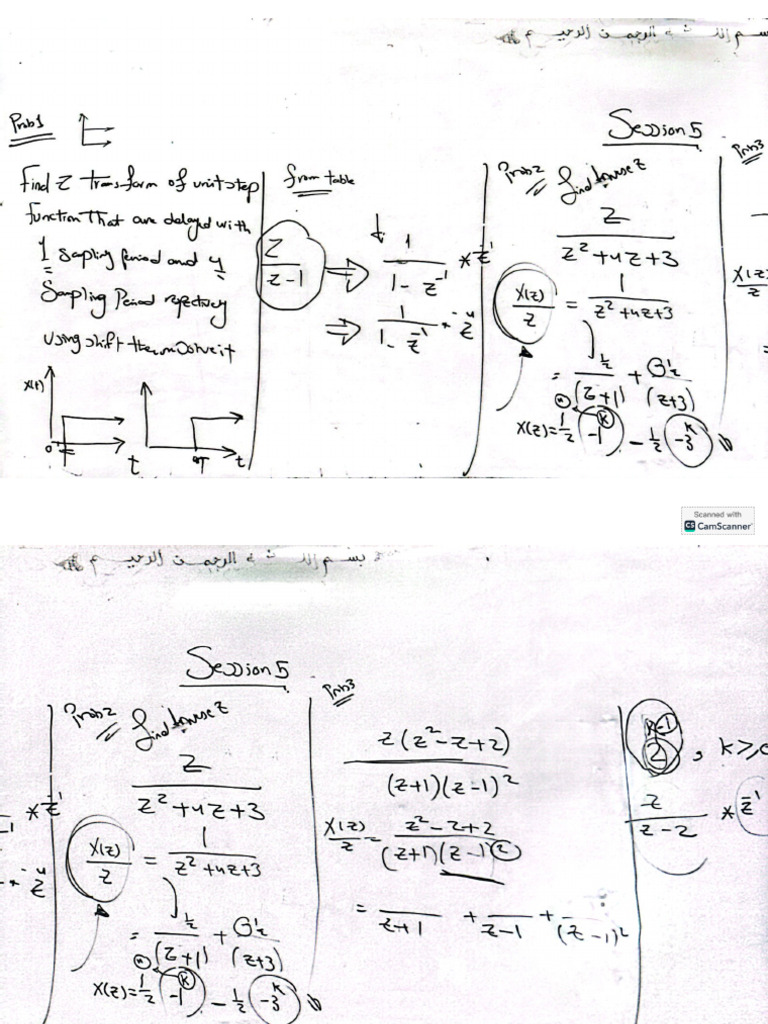 بسم الله الرحمن الرحيم
Session 5
Prob1
Find Z transform of unit step
function that are delayed with
1 sapling period and 4
Sampling Period repetively
using shift theorm solve it
x(t)
0 T t
4T t
from table
z / z-1 ⇒ 1 / 1-z^-1 * z^-1
⇒ 1 / 1-z^-1 * z^-4
Prob2
find Inverse Z
z / z²+4z+3
X(z)/z = 1 / z²+4z+3
= ½ / (z+1) + -½ / (z+3)
X(z)=½ -1^k - ½ -3^k
Prob3
X(z)/z
Scanned with
CS CamScanner
بسم الله الرحمن الرحيم
Session 5
* z^-1
* z^-4
Prob2
find Inverse Z
z / z²+4z+3
X(z)/z = 1 / z²+4z+3
= ½ / (z+1) + -½ / (z+3)
X(z)=½ -1^k - ½ -3^k
Prob3
z(z²-z+2) / (z+1)(z-1)²
X(z)/z = z²-z+2 / (z+1)(z-1)²
= / z+1 + / z-1 + / (z-1)²
2^k-1 , k≥0
z / z-2 * z^-1